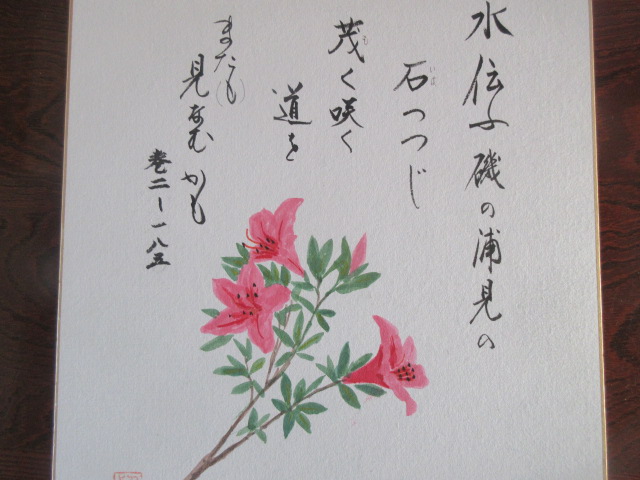 水伝ふ磯の浦見の
石つつじ
茂く咲く
道を
またも
見なむかも
巻二ー一八五